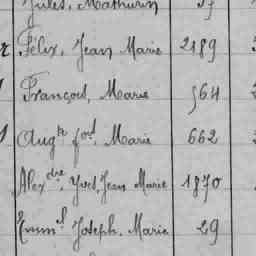 Jules, Mathurin
Félix, Jean Marie 2189
François, Marie 564
Aug^te ford, Marie 662
Alex^dre, Yves, Jean Marie 1870
Emm^l Joseph, Marie 29